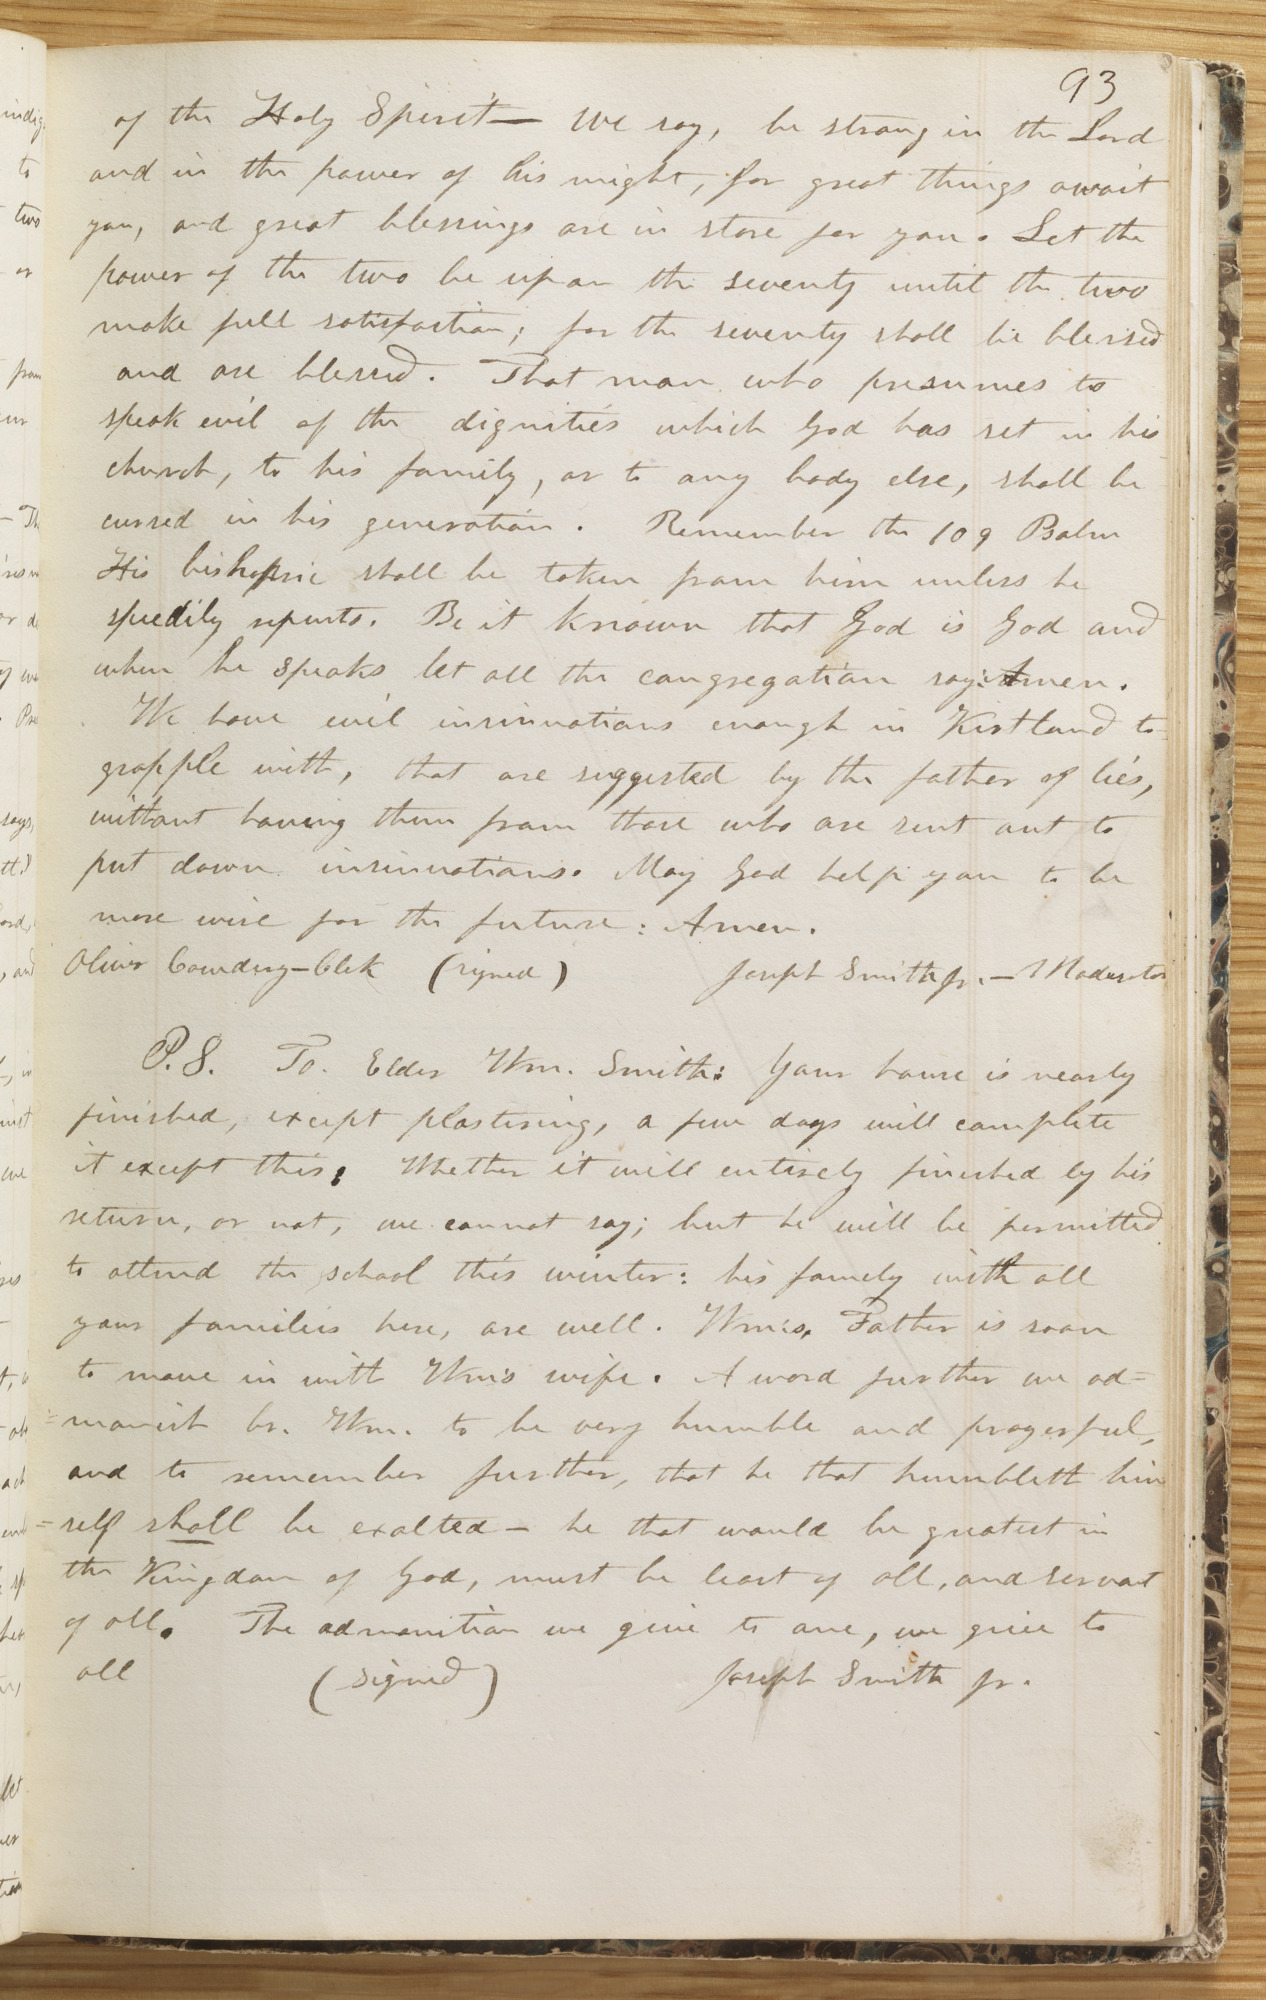 93
of the Holy Spirit— We say, be strong in the Lord
and in the power of his might, for great things await
you, and great blessings are in store for you. Let the
power of the two be upon the seventy until the two
make full satisfaction; for the seventy shall be blessed
and are blessed. That man who presumes to
speak evil of the dignities which God has set in his
church, to his family, or to any body else, shall be
cursed in his generation. Remember the 109 Psalm
His bishopric shall be taken from him unless he
speedily repents. Be it known that God is God and
when he speaks let all the congregation say: Amen.
We have evil insinuations enough in Kirtland to
grapple with, that are suggested by the father of lies,
without having them from those who are sent out to
put down insinuations. May God help you to be
more wise for the future: Amen.
Oliver Cowdery—Clek (signed) Joseph Smith jr.— Moderator
P.S. To. Elder Wm. Smith: Your house is nearly
finished, except plastering, a few days will complete
it except this; Whether it will entirely finished by his
return, or not, we cannot say; but he will be permitted
to attend the school this winter: his family with all
your families here, are well. Wm's, Father is soon
to move in with Wm's wife. A word further we ad=
=monish br. Wm. to be very humble and prayerful,
and to remember further, that he that humbleth him
=self shall be exalted — he that would be greatest in
the Kingdom of God, must be least of all, and servant
of all. The admonition we give to one, we give to
all (signed) Joseph Smith jr.